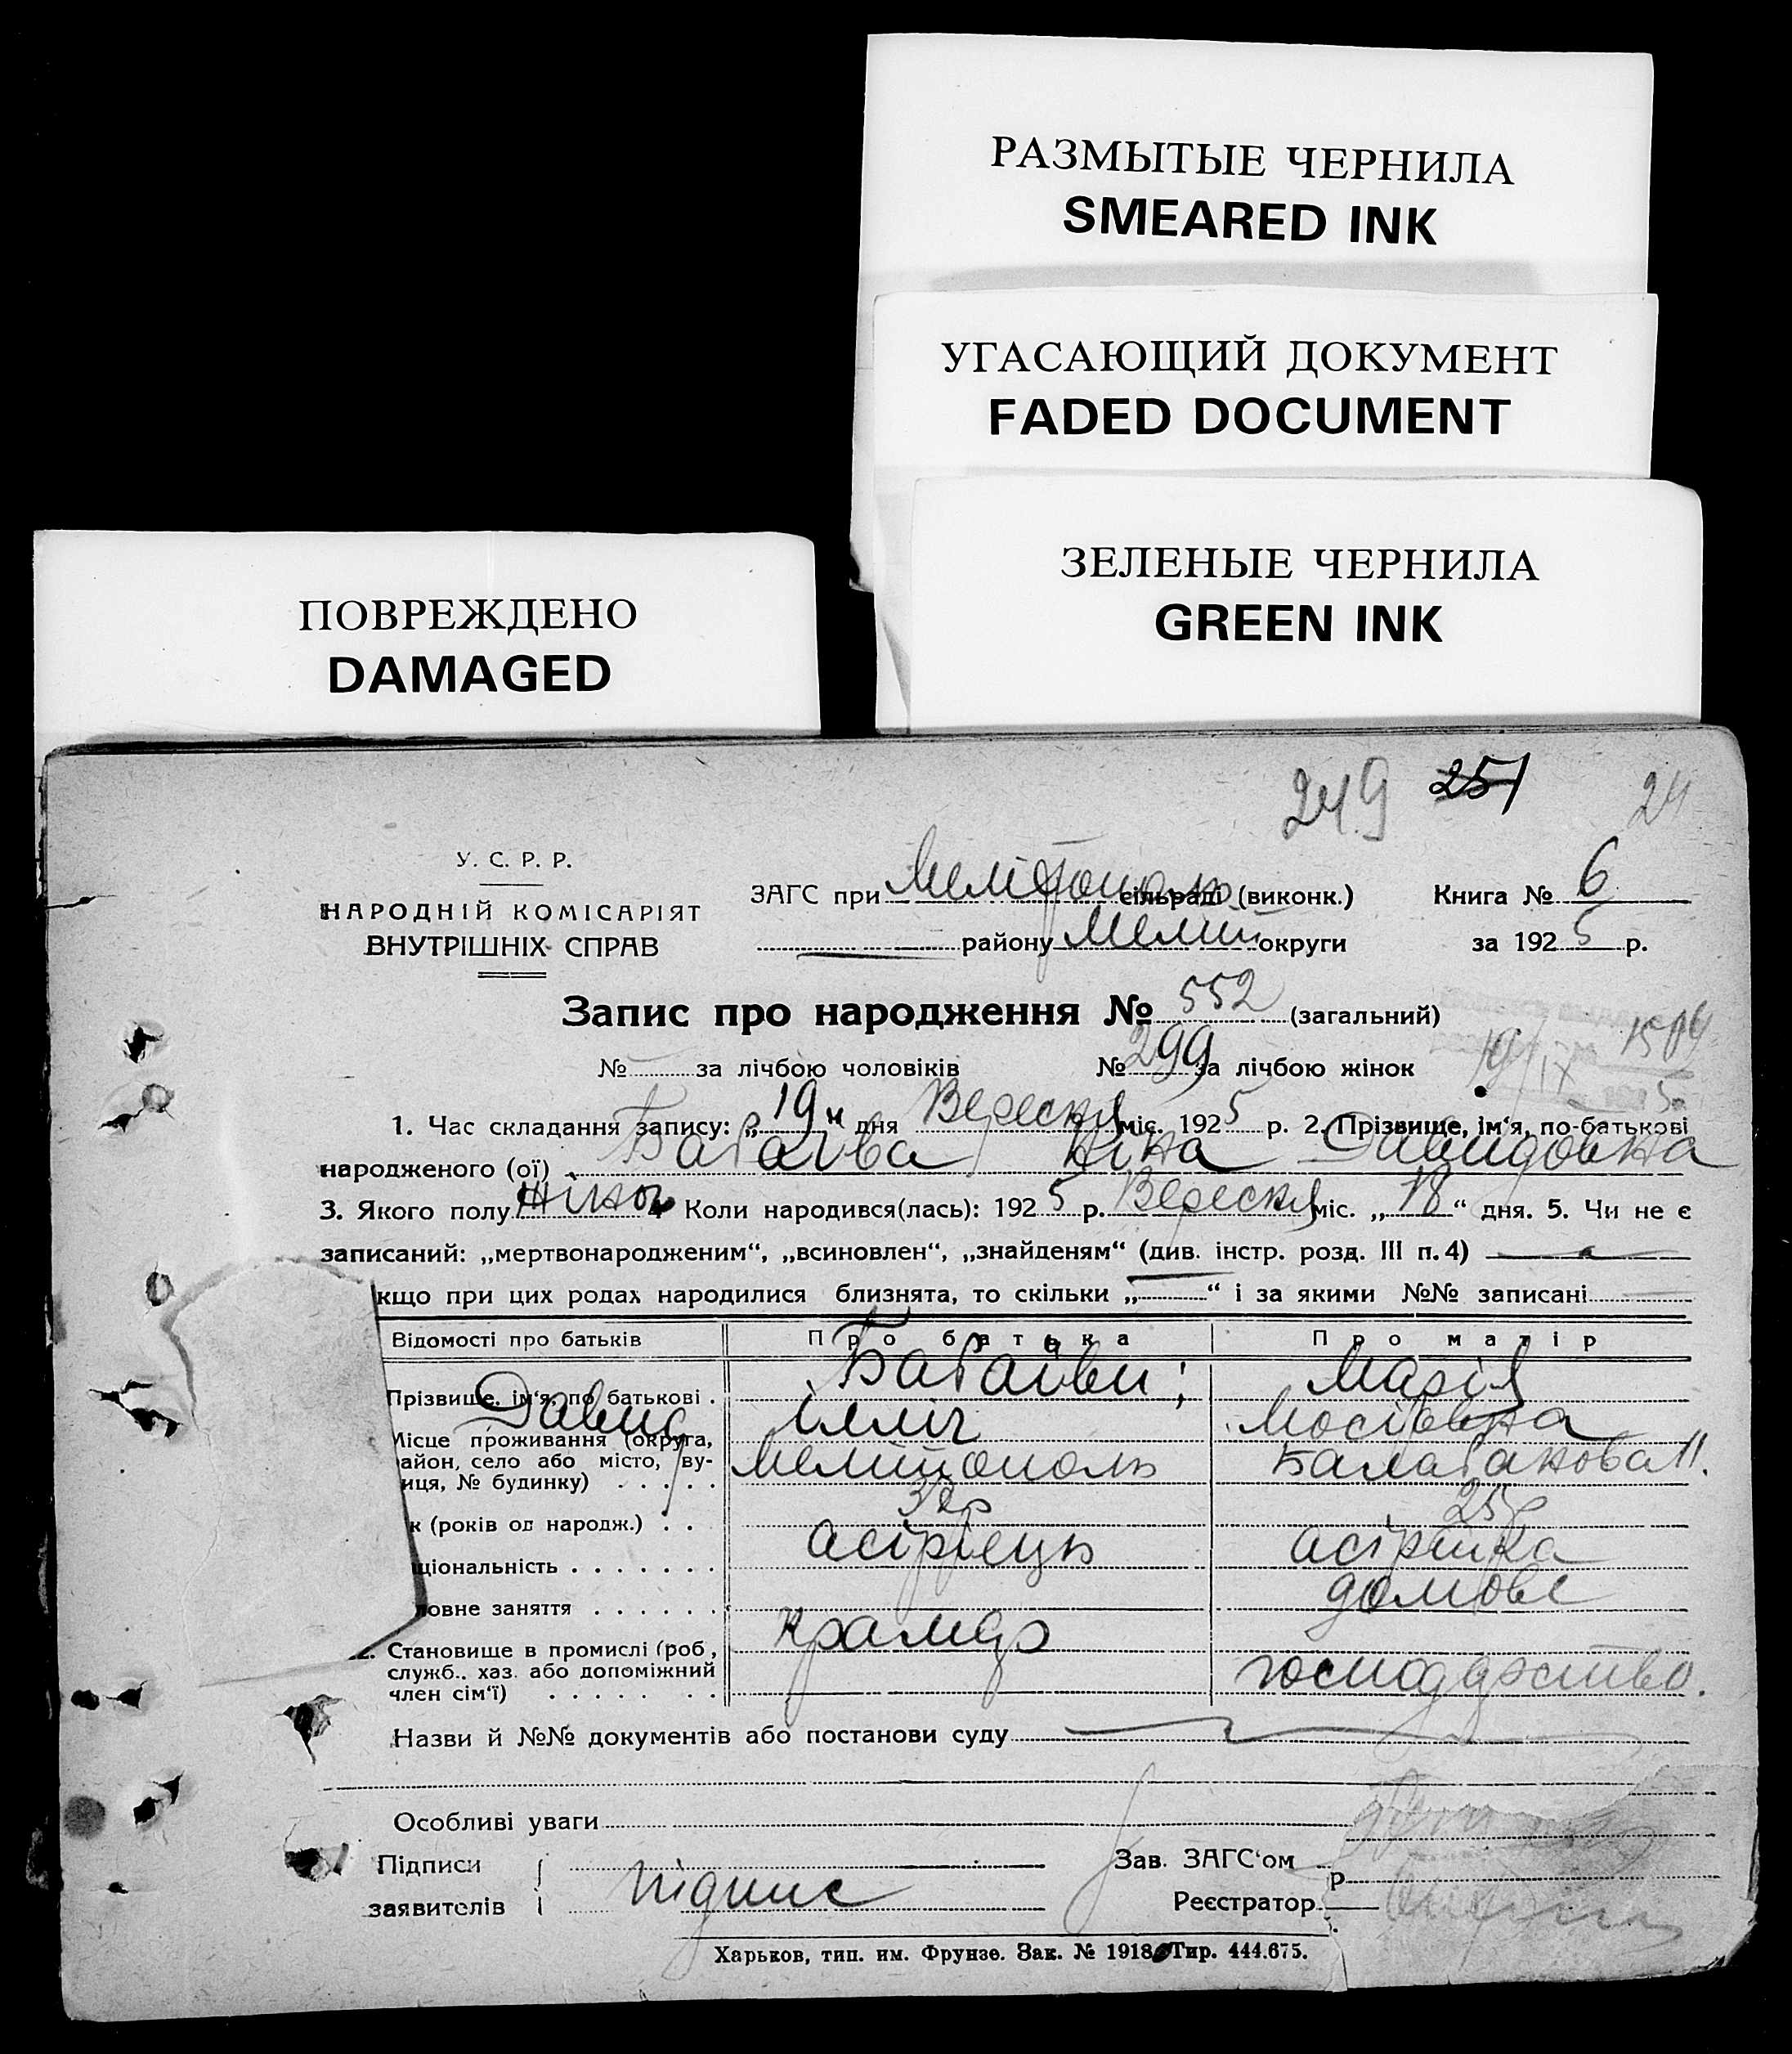 РАЗМЫТЫЕ ЧЕРНИЛА
SMEARED INK
УГАСАЮЩИЙ ДОКУМЕНТ
FADED DOCUMENT
ЗЕЛЕНЫЕ ЧЕРНИЛА
GREEN INK
ПОВРЕЖДЕНО
DAMAGED
249 251 24
У. С. Р. Р.
НАРОДНІЙ КОМІСАРІЯТ
ВНУТРІШНІХ СПРАВ
ЗАГС при Мелітополь сільраді (виконк.) Книга № 6
району Меліт округи за 1925 р.
Запис про народження № 552 (загальний)
№ за лічбою чоловіків № 299 за лічбою жінок
19/IX 1504
1. Час складання запису: „19“ дня Вересня міс. 1925 р. 2. Прізвище, ім‘я, по-батькові
народженого (ої) Багаева Ніна Давидовна
3. Якого полу жіноч 4 Коли народився(лась): 1925 р. Вересня міс. „18“ дня. 5. Чи не є
записаний: „мертвонародженим“, „всиновлен“, „знайденям“ (див. інстр. розд. III п. 4)
кщо при цих родах народилися близнята, то скільки „ “ і за якими №№ записані
Відомості про батьків Про батька Про матір
Прізвище, ім‘я, по батькові . Марія
Давид Ілліч
Місце проживання (округа,
айон, село або місто, ву-
иця, № будинку) . . . . . Мелітополь 11.
к (років од народж.) . . 32р 25р
ціональність . . . . . . . асірієць асірійка
овне заняття . . . . . . крамар домове
2. Становище в промислі (роб.,
служб., хаз. або допоміжний
член сім‘ї) . . . . . . . господарство.
Назви й №№ документів або постанови суду
Особливі уваги
Підписи
заявителів підпис
Зав. ЗАГС‘ом
Реєстратор
Харьков, тип. им. Фрунзе. Зак. № 1918. Тир. 444.675.